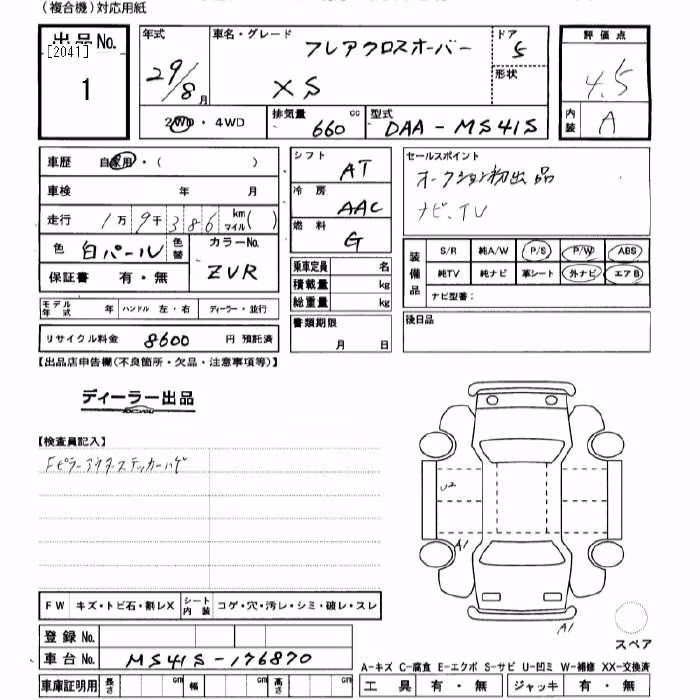 (複合機)対応用紙
出品No.
[2041]
1
年式
29/8月
車名・グレード
フレアクロスオーバー
XS
ドア
5
形状
評価点
4.5
内装 A
2WD・4WD
排気量 660 cc
型式 DAA-MS41S
車歴 自家用・( )
車検 年 月
走行 1万9千386 km マイル( )
色 白パール 色替
カラーNo. ZVR
保証書 有・無
モデル年式 年 ハンドル 左・右 ディーラー・並行
リサイクル料金 8600 円 預託済
シフト AT
冷房 AAC
燃料 G
乗車定員 名
積載量 kg
総重量 kg
書類期限
月 日
セールスポイント
オークション初出品
ナビ、TV
装備品
S/R 純A/W P/S P/W ABS
純TV 純ナビ 革シート 外ナビ エアB
ナビ型番:
後日品
【出品店申告欄(不良箇所・欠品・注意事項等)】
ディーラー出品
【検査員記入】
Fピラーアウターステッカーハゲ
U2
A1
A1
スペア
FW キズ・トビ石・割レX シート内装 コゲ・穴・汚レ・シミ・破レ・スレ
登録No.
車台No. MS41S-176870
車庫証明用 長さ cm 幅 cm 高さ cm
A-キズ C-腐食 E-エクボ S-サビ U-凹ミ W-補修 XX-交換済
工具 有・無 ジャッキ 有・無